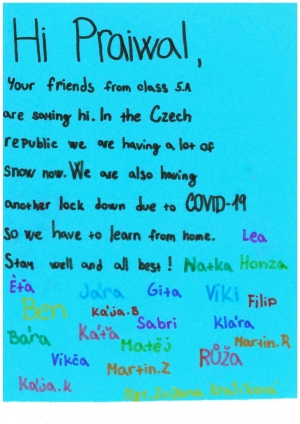 Hi Praiwal,
Your friends from class 5.A
are saying hi. In the Czech
republic we are having a lot of
snow now. We are also having
another lock down due to COVID-19
so we have to learn from home. Lea
Stay well and all best! Natka Honza
Éťa Jára Gita Viki Filip
Ben Kája.B Sabri Klára
Bára Káťa Matěj Martin.R
Vikča Martin.Z RŮŽA
Kája.k Mgr.